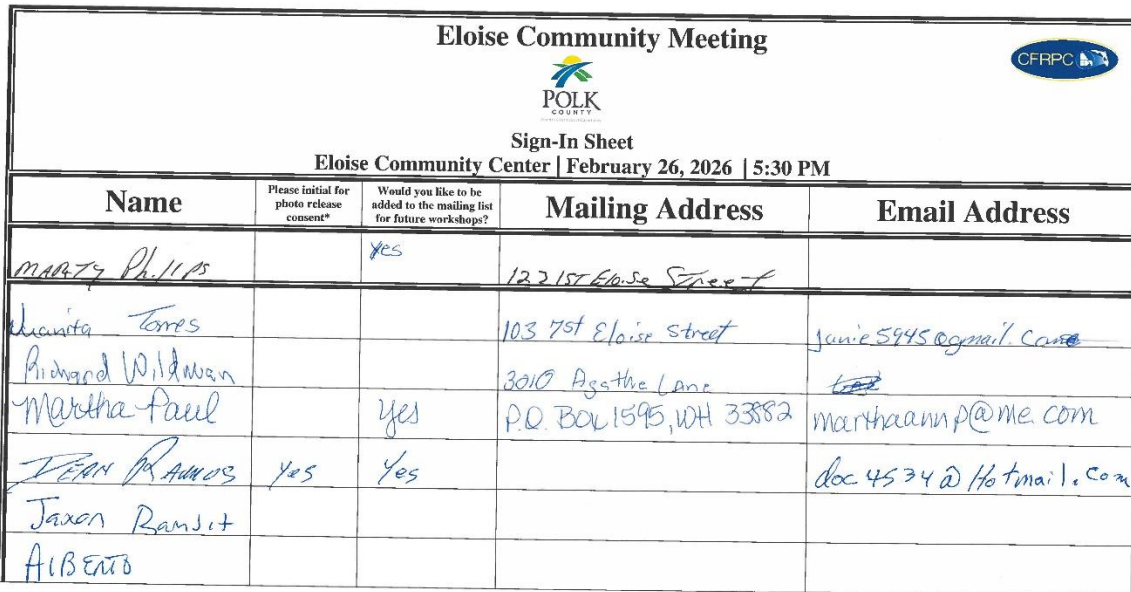 Eloise Community Meeting
CFRPC
POLK
COUNTY
Sign-In Sheet
Eloise Community Center | February 26, 2026 | 5:30 PM
Name Please initial for photo release consent* Would you like to be added to the mailing list for future workshops? Mailing Address Email Address
MARTY Phillips yes 122 1ST Eloise Street
Juanita Torres 103 7st Eloise Street janie5945@gmail.com
Richard Wildman 3010 Agathe Lane
Martha Paul yes P.O. Box 1595, WH 33882 marthaannp@me.com
DEAN RAMOS Yes Yes doc4534@Hotmail.com
Jaxon
AlBERTO